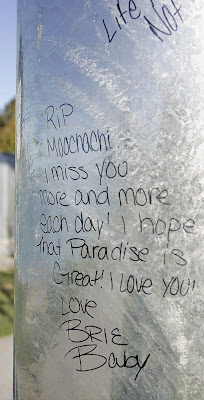 Life
Not
RIP
Moochachi.
I miss you
more and more
each day! I hope
that Paradise is
Great! I love you!
Love
BRIE
Baby